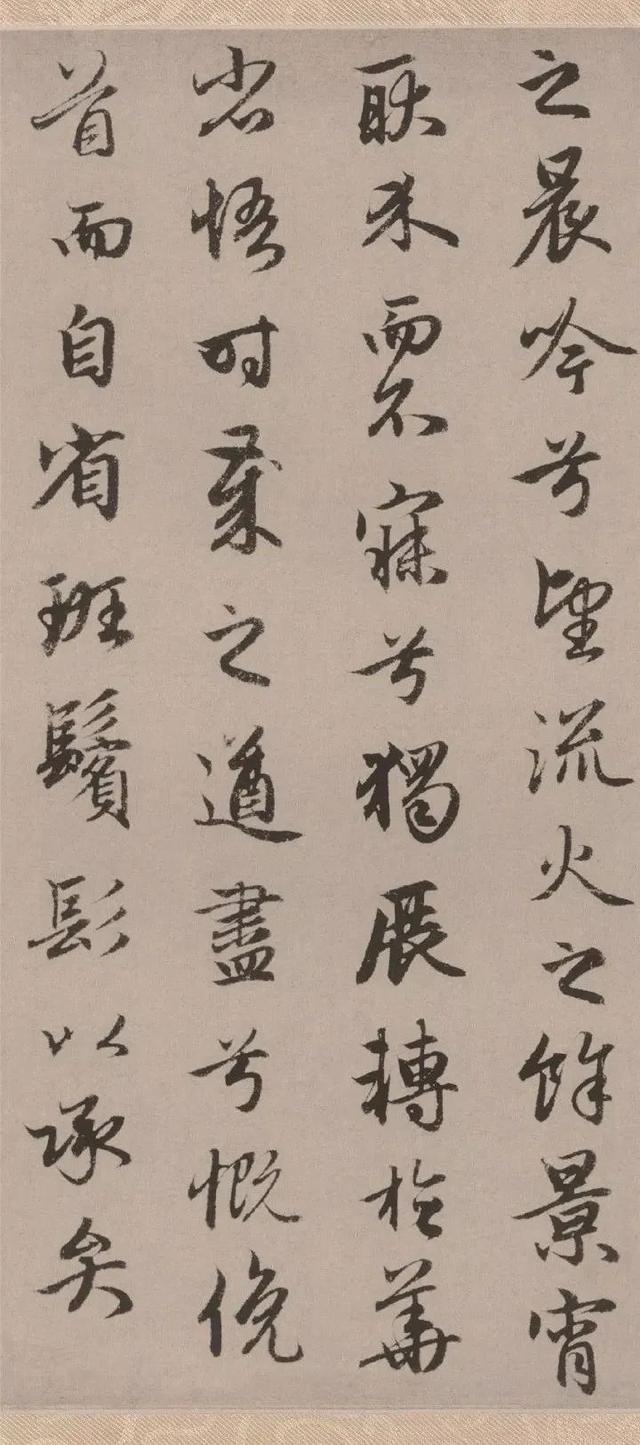 之晨吟兮望流火之餘景宵
耿介而不寐兮獨展轉於華
省悟時歲之遒盡兮慨俛
首而自省班鬢髟以承弁